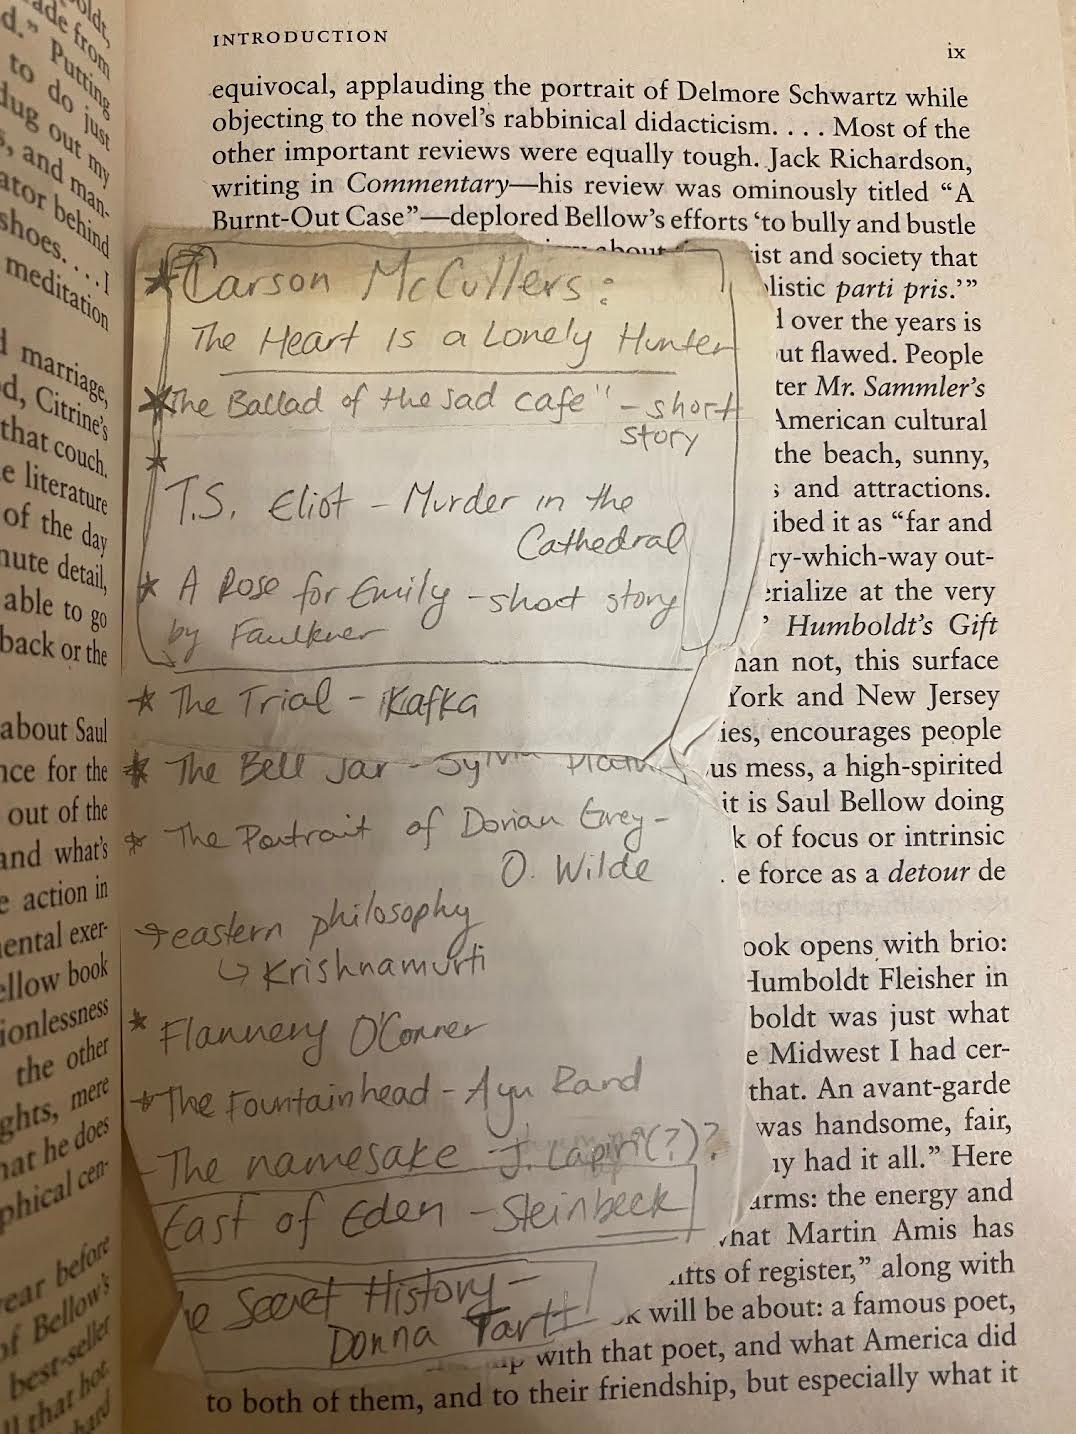 INTRODUCTION
ix
equivocal, applauding the portrait of Delmore Schwartz while
objecting to the novel's rabbinical didacticism. . . . Most of the
other important reviews were equally tough. Jack Richardson,
writing in Commentary—his review was ominously titled “A
Burnt-Out Case”—deplored Bellow's efforts ‘to bully and bustle
about
ist and society that
listic parti pris.’”
over the years is
ut flawed. People
ter Mr. Sammler's
American cultural
the beach, sunny,
and attractions.
ibed it as “far and
ry-which-way out-
erialize at the very
’ Humboldt's Gift
han not, this surface
York and New Jersey
ies, encourages people
us mess, a high-spirited
it is Saul Bellow doing
k of focus or intrinsic
e force as a detour de
ook opens with brio:
Humboldt Fleisher in
boldt was just what
e Midwest I had cer-
that. An avant-garde
was handsome, fair,
ny had it all.” Here
arms: the energy and
what Martin Amis has
ifts of register,” along with
k will be about: a famous poet,
with that poet, and what America did
to both of them, and to their friendship, but especially what it
Carson McCullers:
The Heart Is a Lonely Hunter
The Ballad of the Sad cafe" - short
story
T.S. Eliot - Murder in the
Cathedral
A Rose for Emily - short story
by Faulkner
The Trial - Kafka
The Bell Jar - Sylvia Plath
The Portrait of Dorian Grey -
O. Wilde
eastern philosophy
Krishnamurti
Flannery O'Conner
The Fountainhead - Ayn Rand
- The namesake - J. Lapiri(?)?
East of Eden - Steinbeck
e Secret History -
Donna Tartt
oldt,
ade from
d.” Putting
to do just
dug out my
s, and man-
ator behind
shoes. . . . I
meditation
marriage,
d, Citrine's
that couch.
e literature
of the day
nute detail,
able to go
back or the
about Saul
nce for the
out of the
and what's
e action in
ental exer-
ellow book
ionlessness
the other
ghts, mere
hat he does
phical cen-
ear before
of Bellow's
best-seller
ll that hot
hard